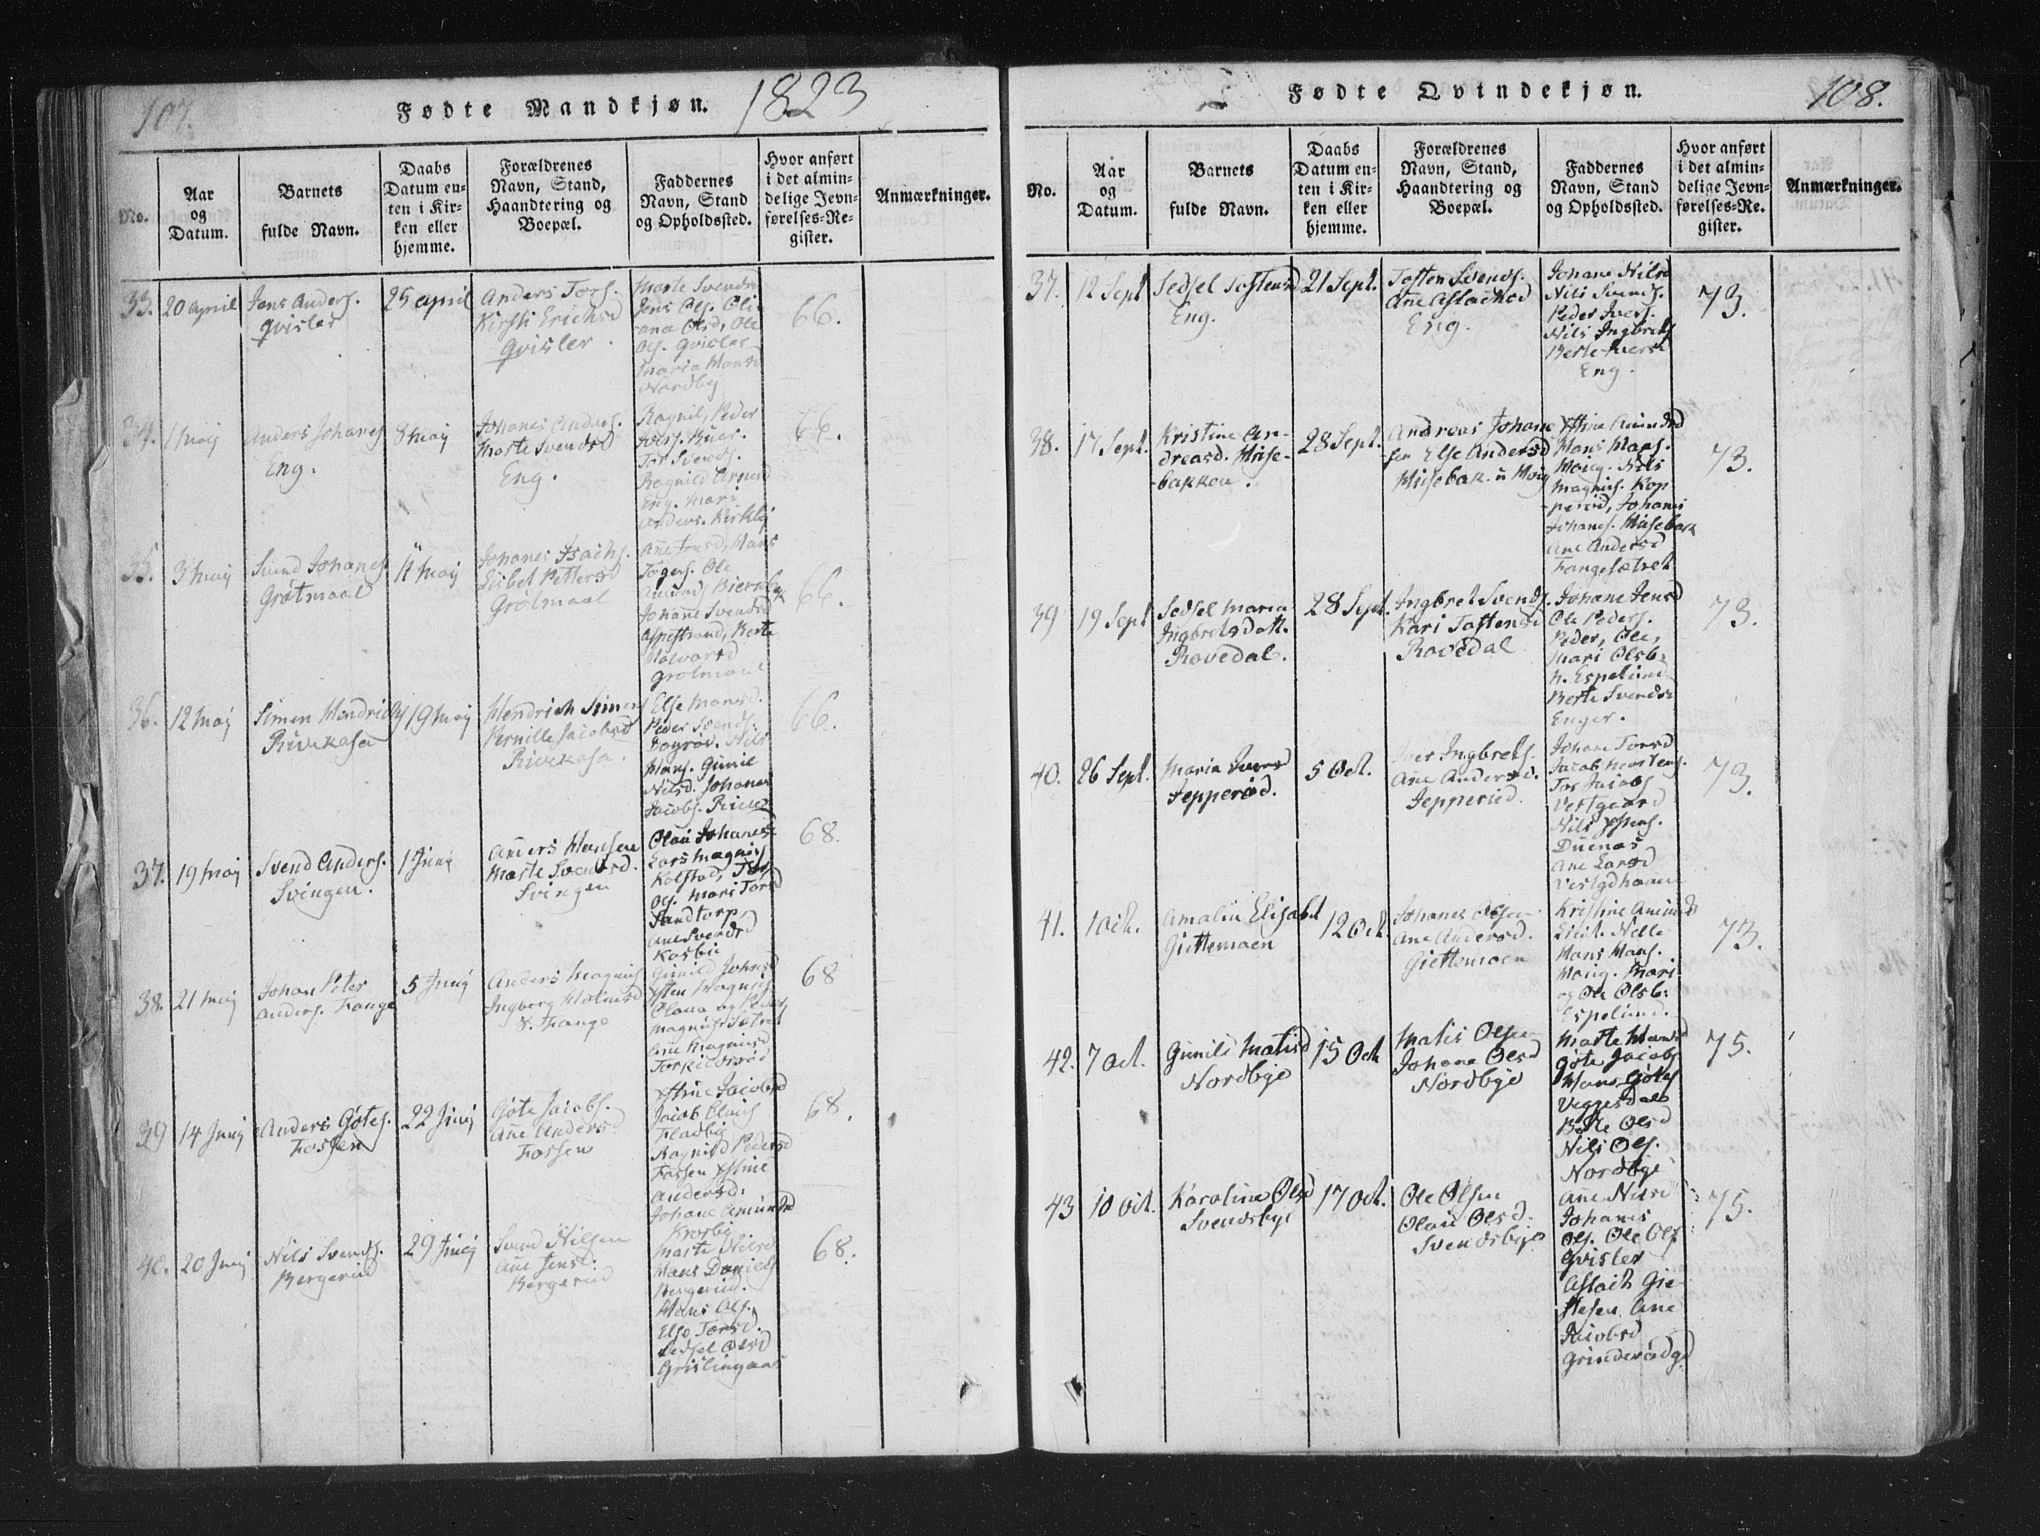 107.
Fødte Mandkjøn. 1823
No.
Aar
og
Datum.
Barnets
fulde Navn.
Daabs
Datum en-
ten i Kir-
ken eller
hjemme.
Forældrenes
Navn, Stand,
Haandtering og
Boepæl.
Faddernes
Navn, Stand
og Opholdssted.
Hvor anført
i det almin-
delige Jevn-
førelses-Re-
gister.
Anmærkninger.
33. 20 april
Jens Anders.
Qvisler
25 april
Anders Tors.
Kirsti Erichsd
Qvisler.
Marte Svendsd
Jens Ols. Oli-
ana Olsd, Ole
Ols. Qvisler
Maria Hansd
Nordby
66.
34. 1 maij
Anders Johanes.
Eng.
8 maij
Johanes Anders.
Marte Svendsd
Eng.
Ragnil, Peder
Tor Svends.
Ragnild Arnesd
Eng. Mari
Anders. Kirkbij
66.
35. 3 maij
Svend Johanes.
Grøtmaal
11 maij
Johanes Isachs.
Lisbet Pettersd
Grølmaal
Ane Jensd, Hans
Johane Svendsd
Aspestrand, Berte
Halvorsd
Grølmaal
66.
36. 12 maij
Simen Hendrichs
Rivekasa
19 maij
Hendrich Simens
Pernille Jacobsd
Rivekasa.
Else Hansd.
Peder Svends.
Nils
Hans. Gunil
Nilsd. Johanes
Jacobs.
66.
37. 19 maij
Svend Anders.
Svingen.
1 Junij
Anders Hansen
Marte Svendsd.
Svingen
Olau Johanesd
Lars Magnus
Kolstad, Tor
Ols. Mari Torsd
Sandtorp,
Ane Svendsd
Kasbu
68.
38. 21 maij
Johan Peter
Anders. Fange
5 Junij
Anders Magnus
Ingborg Halvorsd
S. Fange
Gunild Johnsd
Østen Magnus.
Olaua og Peder
Magnus Sætret
Ane Magnusd
Torkildsrød
68
39 14 Junij
Anders Gøtes.
Fossen
22 Junij
Gøte Jacobs.
Ane Andersd
Fossen
Østine Jacobsd
Jacob Claus
Fladbij
Ragnild Pedersd
Fossen Østine
Andersd.
Johane Amundsd
Krosby
68.
40. 20 Junij
Nils Svends.
Bergerud
29 Junij
Svend Nilsen
Ane Jensd.
Bergerud
Marte Nilsd
Hans Daniels
Bergerud.
Hans Ols.
Else Torsd.
Sedsel Olsd
Grislingaas
68.
108.
Fødte Qvindekjøn.
No.
Aar
og
Datum.
Barnets
fulde Navn.
Daabs
Datum en-
ten i Kir-
ken eller
hjemme.
Forældrenes
Navn, Stand,
Haandtering og
Boepæl.
Faddernes
Navn, Stand
og Opholdssted.
Hvor anført
i det almin-
delige Jevn-
førelses-Re-
gister.
Anmærkninger.
37. 12 Sept
Sedsel Tostensd
Eng.
21 Sept.
Tosten Svends.
Ane Aslachsd
Eng.
Johane Nilsd
Nils Svends.
Peder Ivers.
Nils Ingbrets
Berte Iversd
Eng.
73.
38. 17 Sept.
Kristine An-
dreasd. Muse-
bakken.
28 Sept.
Andreas Johane
sen Else Andersd
Musebak. u Moug
Østine Amundsd
Hans Hans.
Moug. Nils
Magnus. Kop
perød, Johanes
Johanes. Musebak
Ane Andersd
Fangesætret
73.
39 19 Sept
Sedsel Maria
Ingbretsdatt.
Rovedal.
28 Sept.
Ingbret Svends.
Kari Tostensd
Rovedal
Johane Jensd
Ole Peders.
Peder, Ole,
Mari Olsb:
N. Espelund
Berte Svendsd
Enger.
73.
40. 26 Sept.
Maria Iversd
Jepperød.
5 Oct.
Iver Ingbrets.
Ane Andersd.
Jepperud.
Johane Torsd
Jacob Torstens.
Tor Jacobs
Vestgaard
Nils Østens.
Duenæs
Ane Larsd
73.
41. 1 Oct.
Amalia Elisabet
Giettemoen
12 Oct.
Johanes Olsen
Ane Andersd.
Giettemoen
Kristine Amundsd
Hans Hans.
Moug. Mari
og Ole Olsb:
Espelund.
73.
42. 7 Oct.
Gunild Matisd
Nordbye
15 Oct
Matis Olsen
Johane Olsd
Nordbye
Marte Hansd
Gøte Jacobs
Hans Gøtes
Veggesdal
Berte Olsd
Nils Ols.
Nordbye
75.
43 10 Oct.
Karoline Olsd
Svendsbye
17 Oct.
Ole Olsen
Olau Olsd.
Svendsbye
Ane Nilsd
Johanes
Ols. Ole Ols
Qvisler
Aslach Gie-
Ane
Jacobsd
Grinderødgd
75.